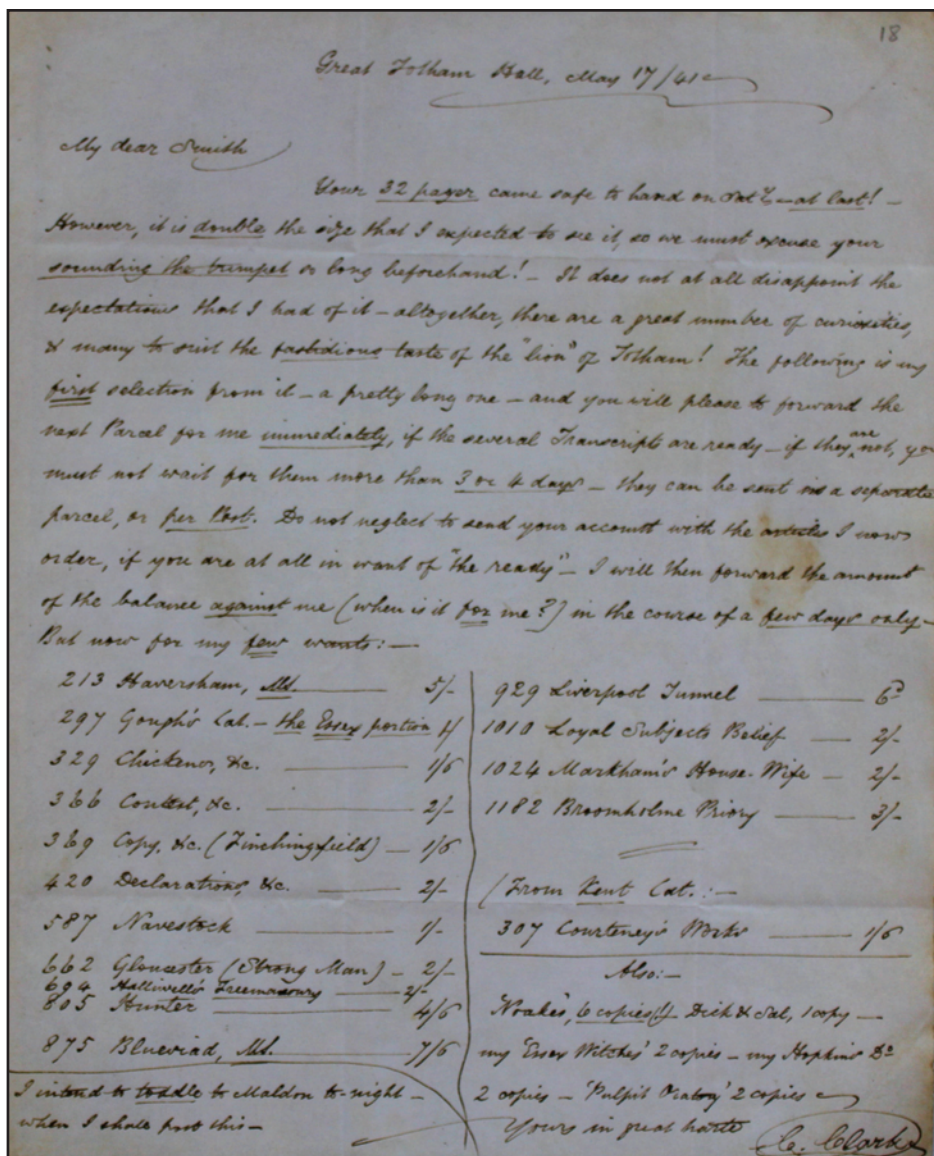 18
Great Totham Hall, May 17/41
My dear Smith
Your 32 pager came safe to hand on Saty - at last! -
However, it is double the size that I expected to see it, so we must excuse your
sounding the trumpet so long beforehand! - It does not at all disappoint the
expectations that I had of it - altogether, there are a great number of curiosities,
& many to suit the fastidious taste of the "lion" of Totham! The following is my
first selection from it - a pretty long one - and you will please to forward the
next Parcel for me immediately, if the several Transcripts are ready - if they are not, you
must not wait for them more than 3 or 4 days - they can be sent in a separate
parcel, or per Post. Do not neglect to send your account with the articles I now
order, if you are at all in want of "the ready" - I will then forward the amount
of the balance against me (when is it for me?) in the course of a few days only -
But now for my few wants: -
213 Haversham, Ms. 5/-
297 Gough's Cat. - the Essex portion 1/
329 Chickens, &c. 1/6
366 Contest, &c. 2/-
369 Copy, &c. (Finchingfield) - 1/6
420 Declarations, &c. 2/-
587 Navestock 1/-
662 Gloucester (Strong Man) - 2/-
694 Halliwell's Freemasonry 2/-
805 Hunter 4/6
875 Blueviad, Ms. 7/6
I intend to toddle to Maldon to-night -
when I shall post this -
929 Liverpool Tunnel 6d
1010 Loyal Subjects Belief 2/-
1024 Markham's House-Wife - 2/-
1182 Broomholme Priory 3/-
(From Kent Cat.: -
307 Courteney's Works 1/6
Also: -
'Noakes', 6 copies(!) Dick & Sal, 1 copy -
my 'Essex Witches' 2 copies - my Hopkins Do
2 copies - 'Pulpit Oratory' 2 copies
Yours in great haste
C. Clark